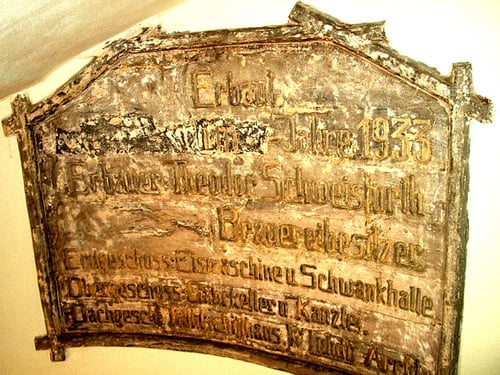 Erbaut
im Jahre 1933
Erbauer: Theodor Schweisfurth
Brauereibesitzer
Erdgeschoss: Eismaschine u Schwankhalle
Obergeschoss: Gärkeller u Kanzlei.
Dachgesch